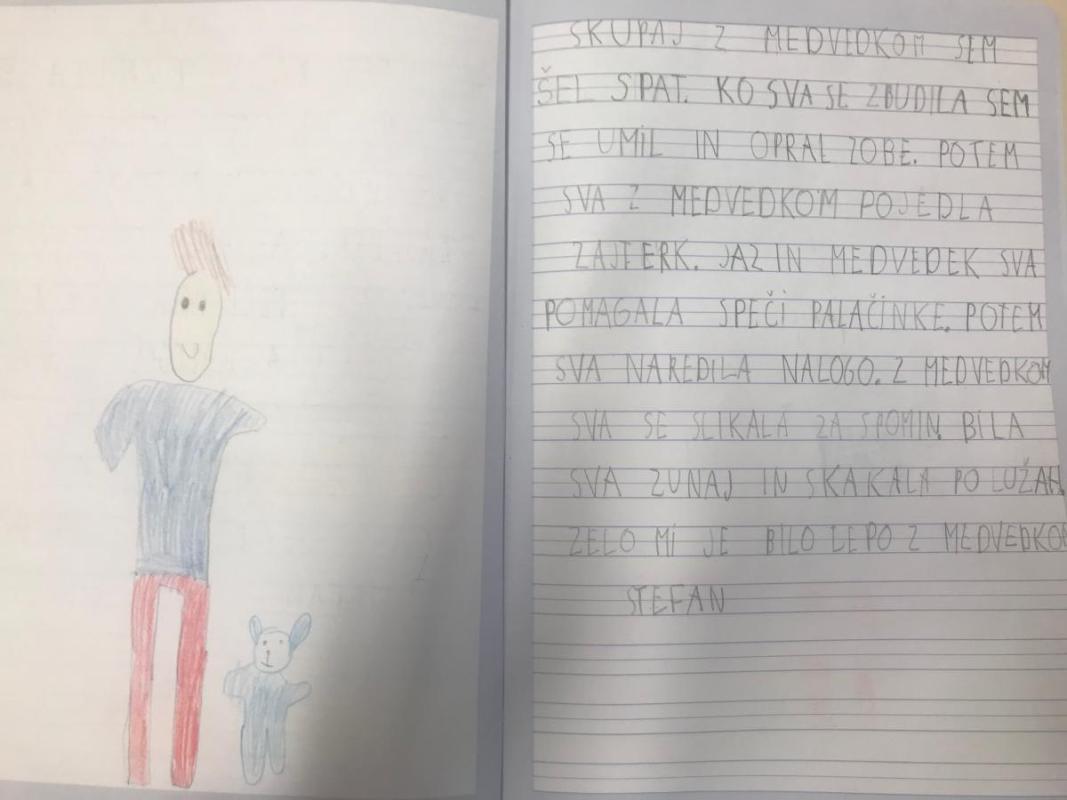 SKUPAJ Z MEDVEDKOM SEM
ŠEL SPAT. KO SVA SE ZBUDILA SEM
SE UMIL IN OPRAL ZOBE. POTEM
SVA Z MEDVEDKOM POJEDLA
ZAJTERK. JAZ IN MEDVEDEK SVA
POMAGALA SPEČI PALAČINKE. POTEM
SVA NAREDILA NALOGO. Z MEDVEDKOM
SVA SE SLIKALA ZA SPOMIN. BILA
SVA ZUNAJ IN SKAKALA PO LUŽAH.
ZELO MI JE BILO LEPO Z MEDVEDKOM
STEFAN